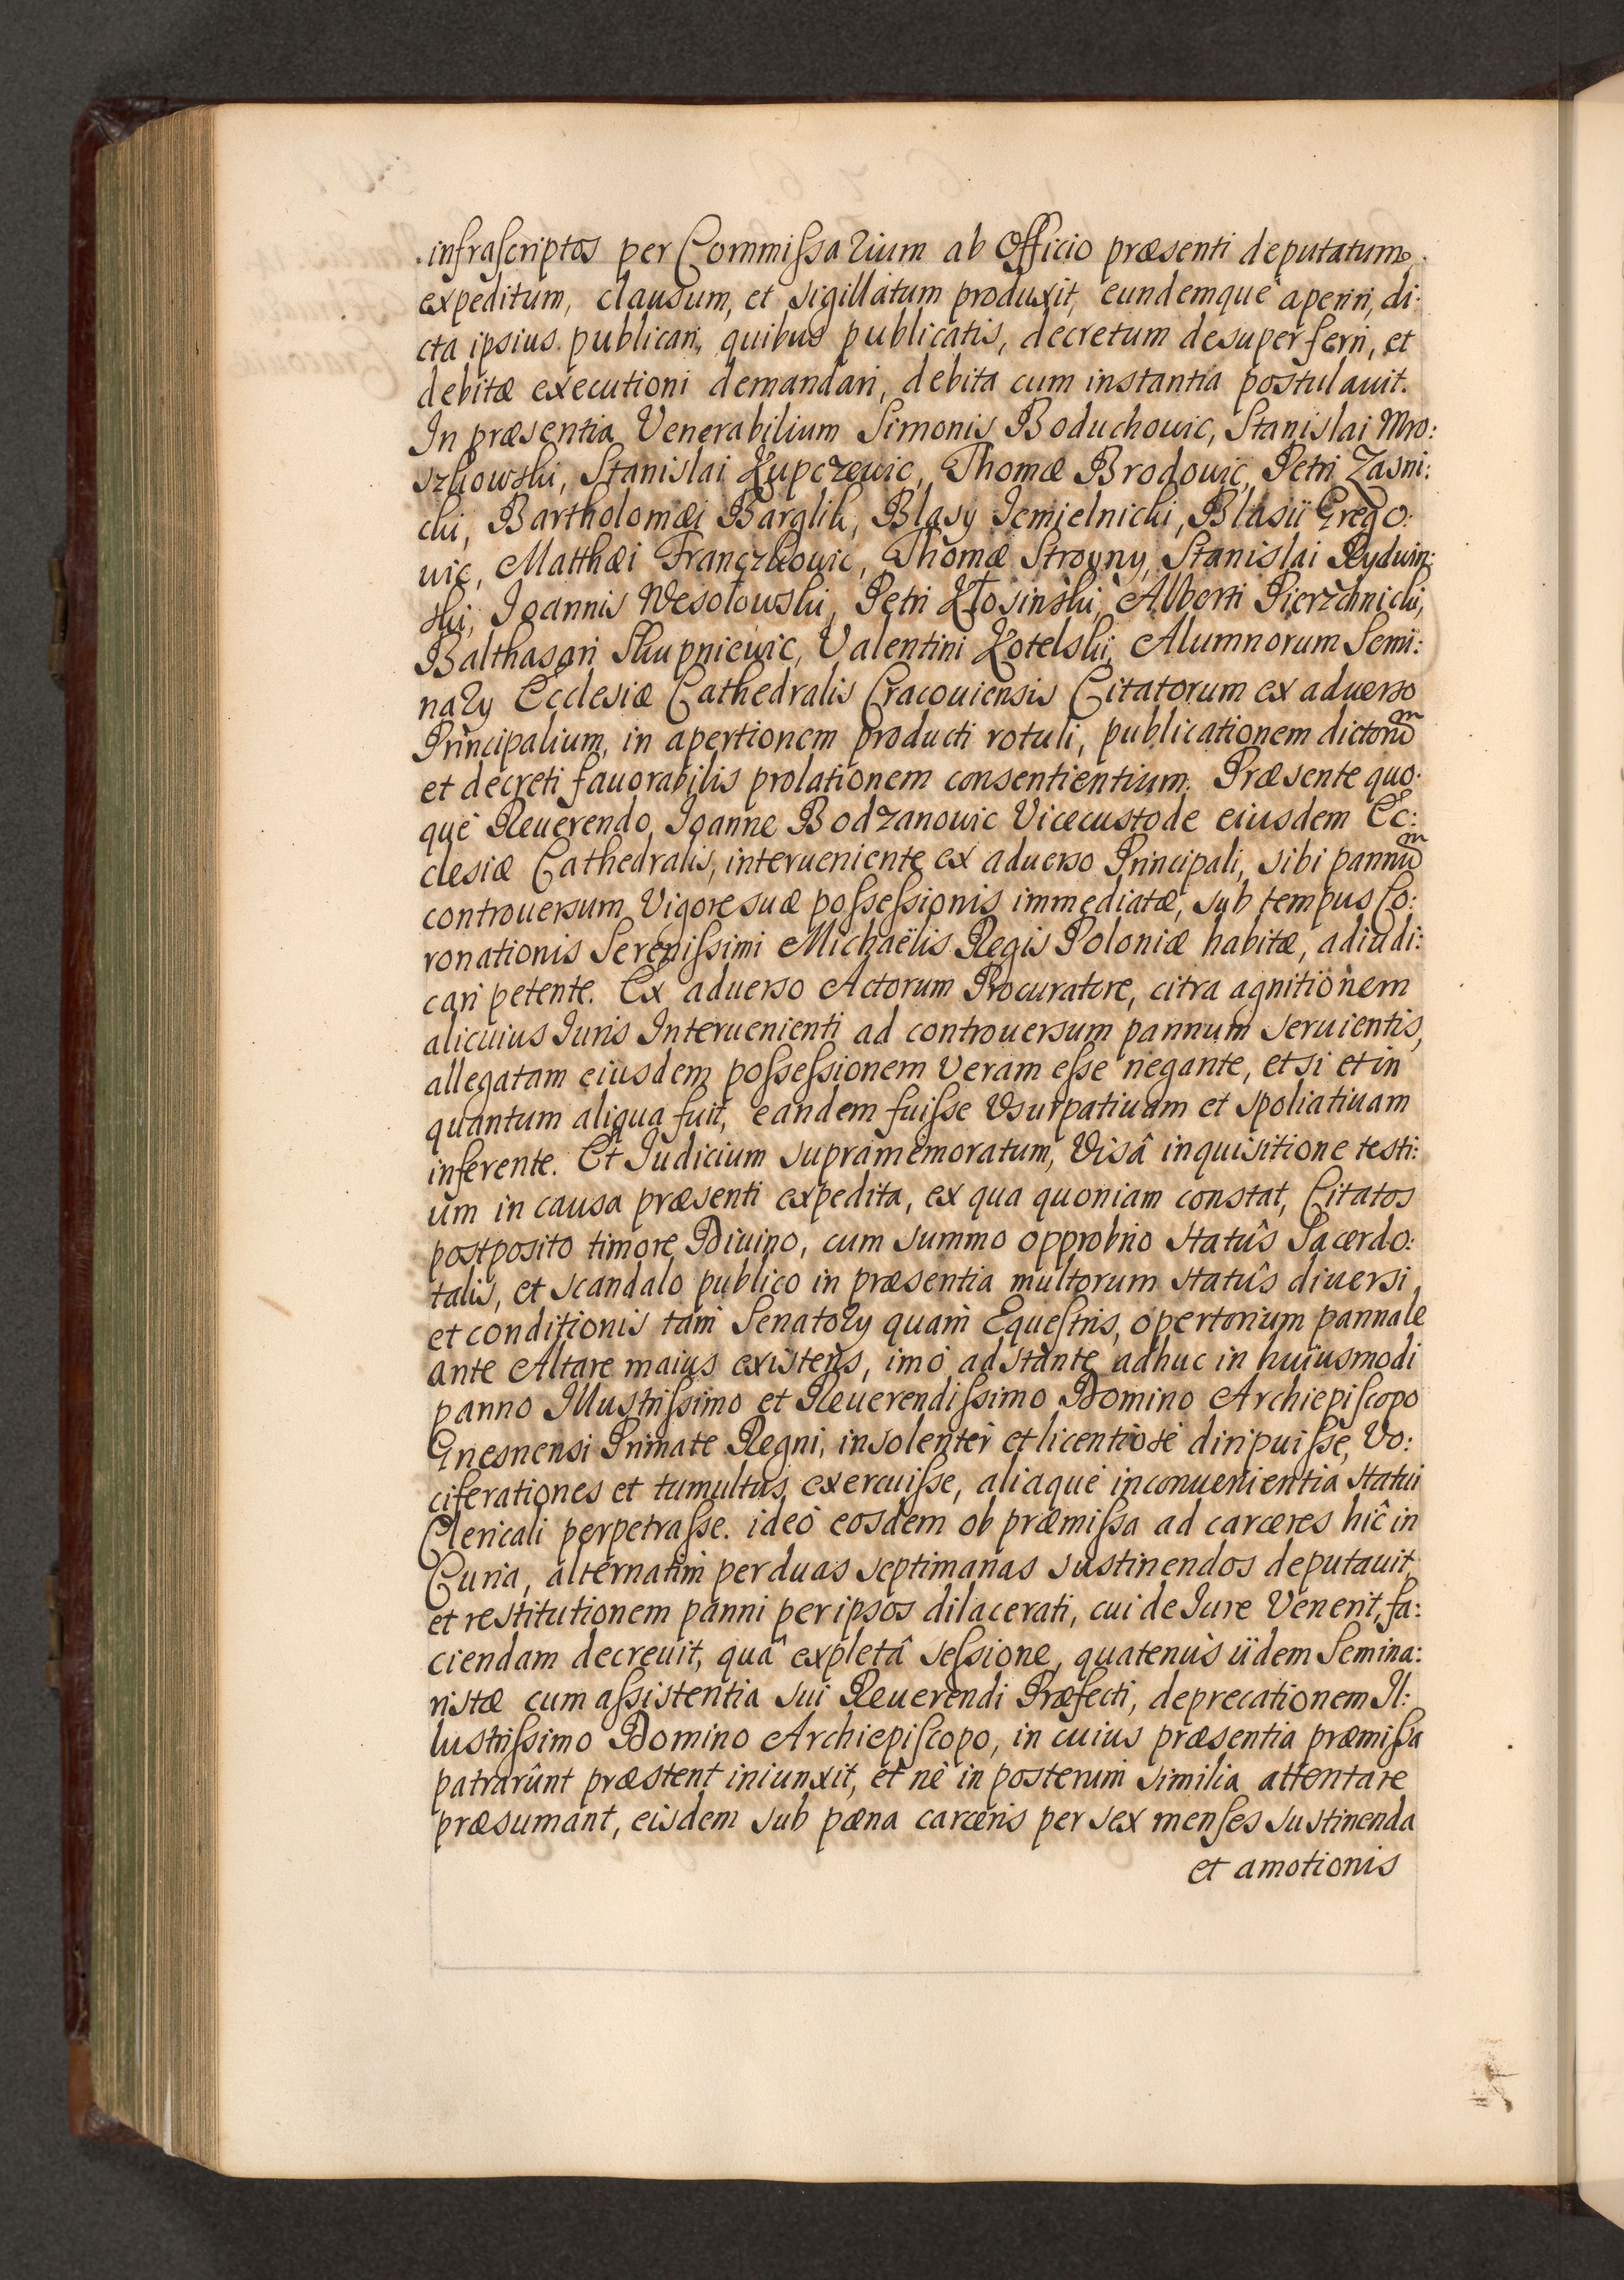 infrascriptos per Commissarium ab Officio præsenti deputatum
expeditum, clausum, et sigillatum produxit, eundemque aperiri, di:
cta ipsius publicari, quibus publicatis, decretum desuper ferri, et
debitæ executioni demandari, debita cum instantia postulauit.
In præsentia Venerabilium Simonis Boduchouic, Stanislai Mro:
szkowski, Stanislai Kupczeuic, Thomæ Brodouic, Petri Zasni:
cki, Bartholomæi Barglik, Blasy Jemielnicki, Blasii Grego:
uic, Matthæi Franczkouic, Thomæ Stroyny, Stanislai Ryduin:
ski, Joannis Wesołowski, Petri Kłosinski, Alberti Pierzchnicki,
Balthasari Skupnieuic, Valentini Kotelski, Alumnorum Semi:
nary Ecclesiæ Cathedralis Cracouiensis Citatorum ex aduerso
Principalium, in apertionem producti rotuli, publicationem dictorũm
et decreti fauorabilis prolationem consentientium. Præsente quo:
que Reuerendo Joanne Bodzanouic Vicecustode eiusdem Ec:
clesiæ Cathedralis, interueniente ex aduerso Principali, sibi pannũm
controuersum Vigore suæ possessionis immediatæ, sub tempus Co:
ronationis Serenissimi Michaëlis Regis Poloniæ habitæ, adiudi:
cari petente. Ex aduerso Actorum Procuratore, citra agnitionem
alicuius Iuris Interuenienti ad controuersum pannum seruientis,
allegatam eiusdem possessionem Veram esse negante, et si et in
quantum aliqua fuit, eandem fuisse Vsurpatiuam et spoliatiuam
inferente. Et Iudicium supramemoratum, Visâ inquisitione testi:
um in causa præsenti expedita, ex qua quoniam constat, Citatos
postposito timore Diuino, cum summo opprobrio statûs Sacerdo:
talis, et scandalo publico in præsentia multorum statûs diuersi,
et conditionis tam Senatory quam Equestris, opertorium pannale
ante Altare maius existens, imò adstante adhuc in huiusmodi
panno Illustrissimo et Reuerendissimo Domino Archiepiscopo
Gnesnensi Primate Regni, insolenter et licentiose diripuisse, Vo:
ciferationes et tumultus exercuisse, aliaque inconuenientia statui
Clericali perpetrasse. ideò eosdem ob præmissa ad carceres hîc in
Curia, alternatim per duas septimanas sustinendos deputauit,
et restitutionem panni per ipsos dilacerati, cui de Iure Venerit, fa:
ciendam decreuit, quâ expletâ sessione, quatenùs iidem Semina:
ristæ cum assistentia sui Reuerendi Præfecti, deprecationem Il:
lustrissimo Domino Archiepiscopo, in cuius præsentia præmissa
patrarûnt præstent iniunxit, et nè in posterum similia attentare
præsumant, eisdem sub pæna carceris per sex menses sustinenda
et amotionis